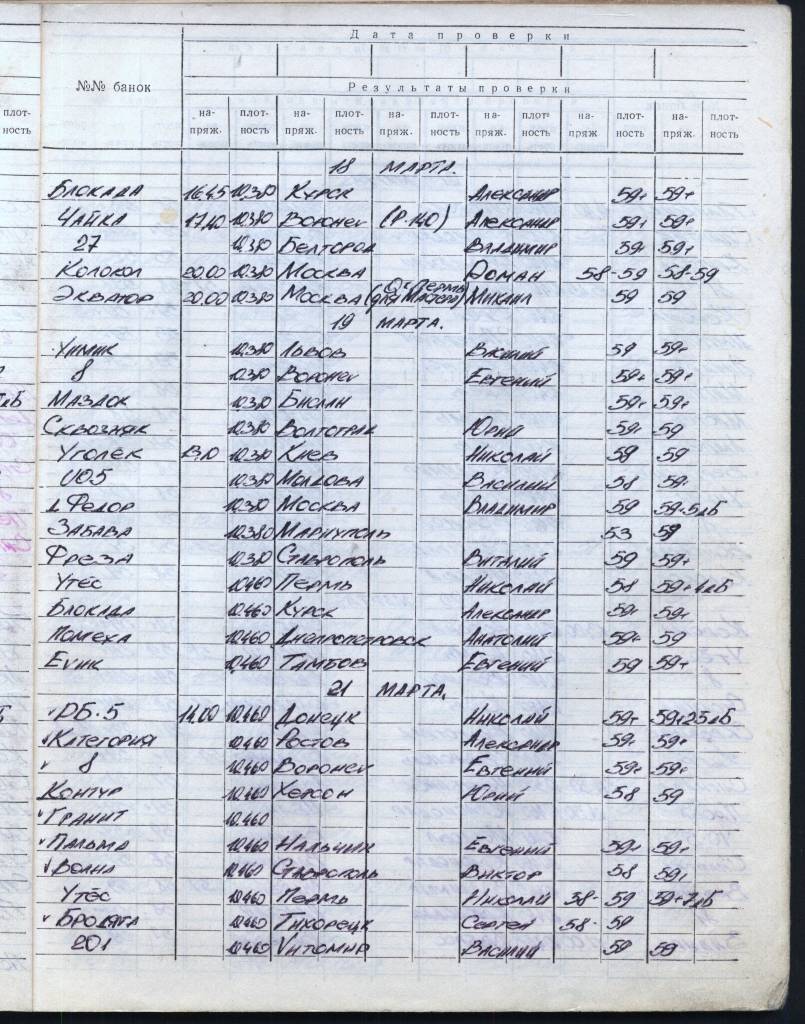 Дата проверки
№№ банок
Результаты проверки
плот-ность на-пряж. плот-ность на-пряж. плот-ность на-пряж. плот-ность на-пряж. плот-ность на-пряж. плот-ность на-пряж. плот-ность
18 МАРТА.
БЛОКАДА 16.45 10.380 КУРСК АЛЕКСАНДР 59+ 59+
ЧАЙКА 17.40 10.380 ВОРОНЕЖ (Р-140) АЛЕКСАНДР 59+ 59+
27 10.380 БЕЛГОРОД ВЛАДИМИР 59+ 59+
КОЛОКОЛ 20.00 10.380 МОСКВА РОМАН 58-59 58-59
ЭКВАТОР 20.00 10.380 МОСКВА (ОП. ПЕРМЬ МИХАИЛ 59 59
19 МАРТА.
ХИМИК 10.380 ЛЬВОВ ВАСИЛИЙ 59 59+
8 10.380 ВОРОНЕЖ ЕВГЕНИЙ 59+ 59+
МАЗДОК 10.380 БИСЛАН 59+ 59+
СКВОЗНЯК 10.380 ВОЛГОГРАД ЮРИЙ 59+ 59
УГОЛЕК 13.10 10.380 КИЕВ НИКОЛАЙ 59 59
U05 10.380 МОЛДОВА ВАСИЛИЙ 58 59
Д. ФЕДОР 10.380 МОСКВА ВЛАДИМИР 59 59+5дБ
ЗАБАВА 10.380 МАРИУПОЛЬ 53 59
ФРЕЗА 10.380 СТАВРОПОЛЬ ВИТАЛИЙ 59 59+
УТЕС 10.460 ПЕРМЬ НИКОЛАЙ 58 59+4дБ
БЛОКАДА 10.460 КУРСК АЛЕКСАНДР 59+ 59+
ПОМЕХА 10.460 ДНЕПРОПЕТРОВСК АНАТОЛИЙ 59+ 59
ЕЖИК 10.460 ТАМБОВ ЕВГЕНИЙ 59 59+
21 МАРТА.
✓РБ-5 14.00 10.460 ДОНЕЦК НИКОЛАЙ 59+ 59+25дБ
✓КАТЕГОРИЯ 10.460 РОСТОВ АЛЕКСАНДР 59+ 59+
✓ 8 10.460 ВОРОНЕЖ ЕВГЕНИЙ 59+ 59+
КОНТУР 10.460 ХЕРСОН ЮРИЙ 58 59
✓ГРАНИТ 10.460
✓ПАЛЬМА 10.460 НАЛЬЧИК ЕВГЕНИЙ 59+ 59+
✓ВОЛНА 10.460 СТАВРОПОЛЬ ВИКТОР 58 59+
УТЁС 10.460 ПЕРМЬ НИКОЛАЙ 58-59 59+7дБ
✓БРОДЯГА 10.460 ТИХОРЕЦК СЕРГЕЙ 58-59
201 10.460 ЖИТОМИР ВАСИЛИЙ 59 59